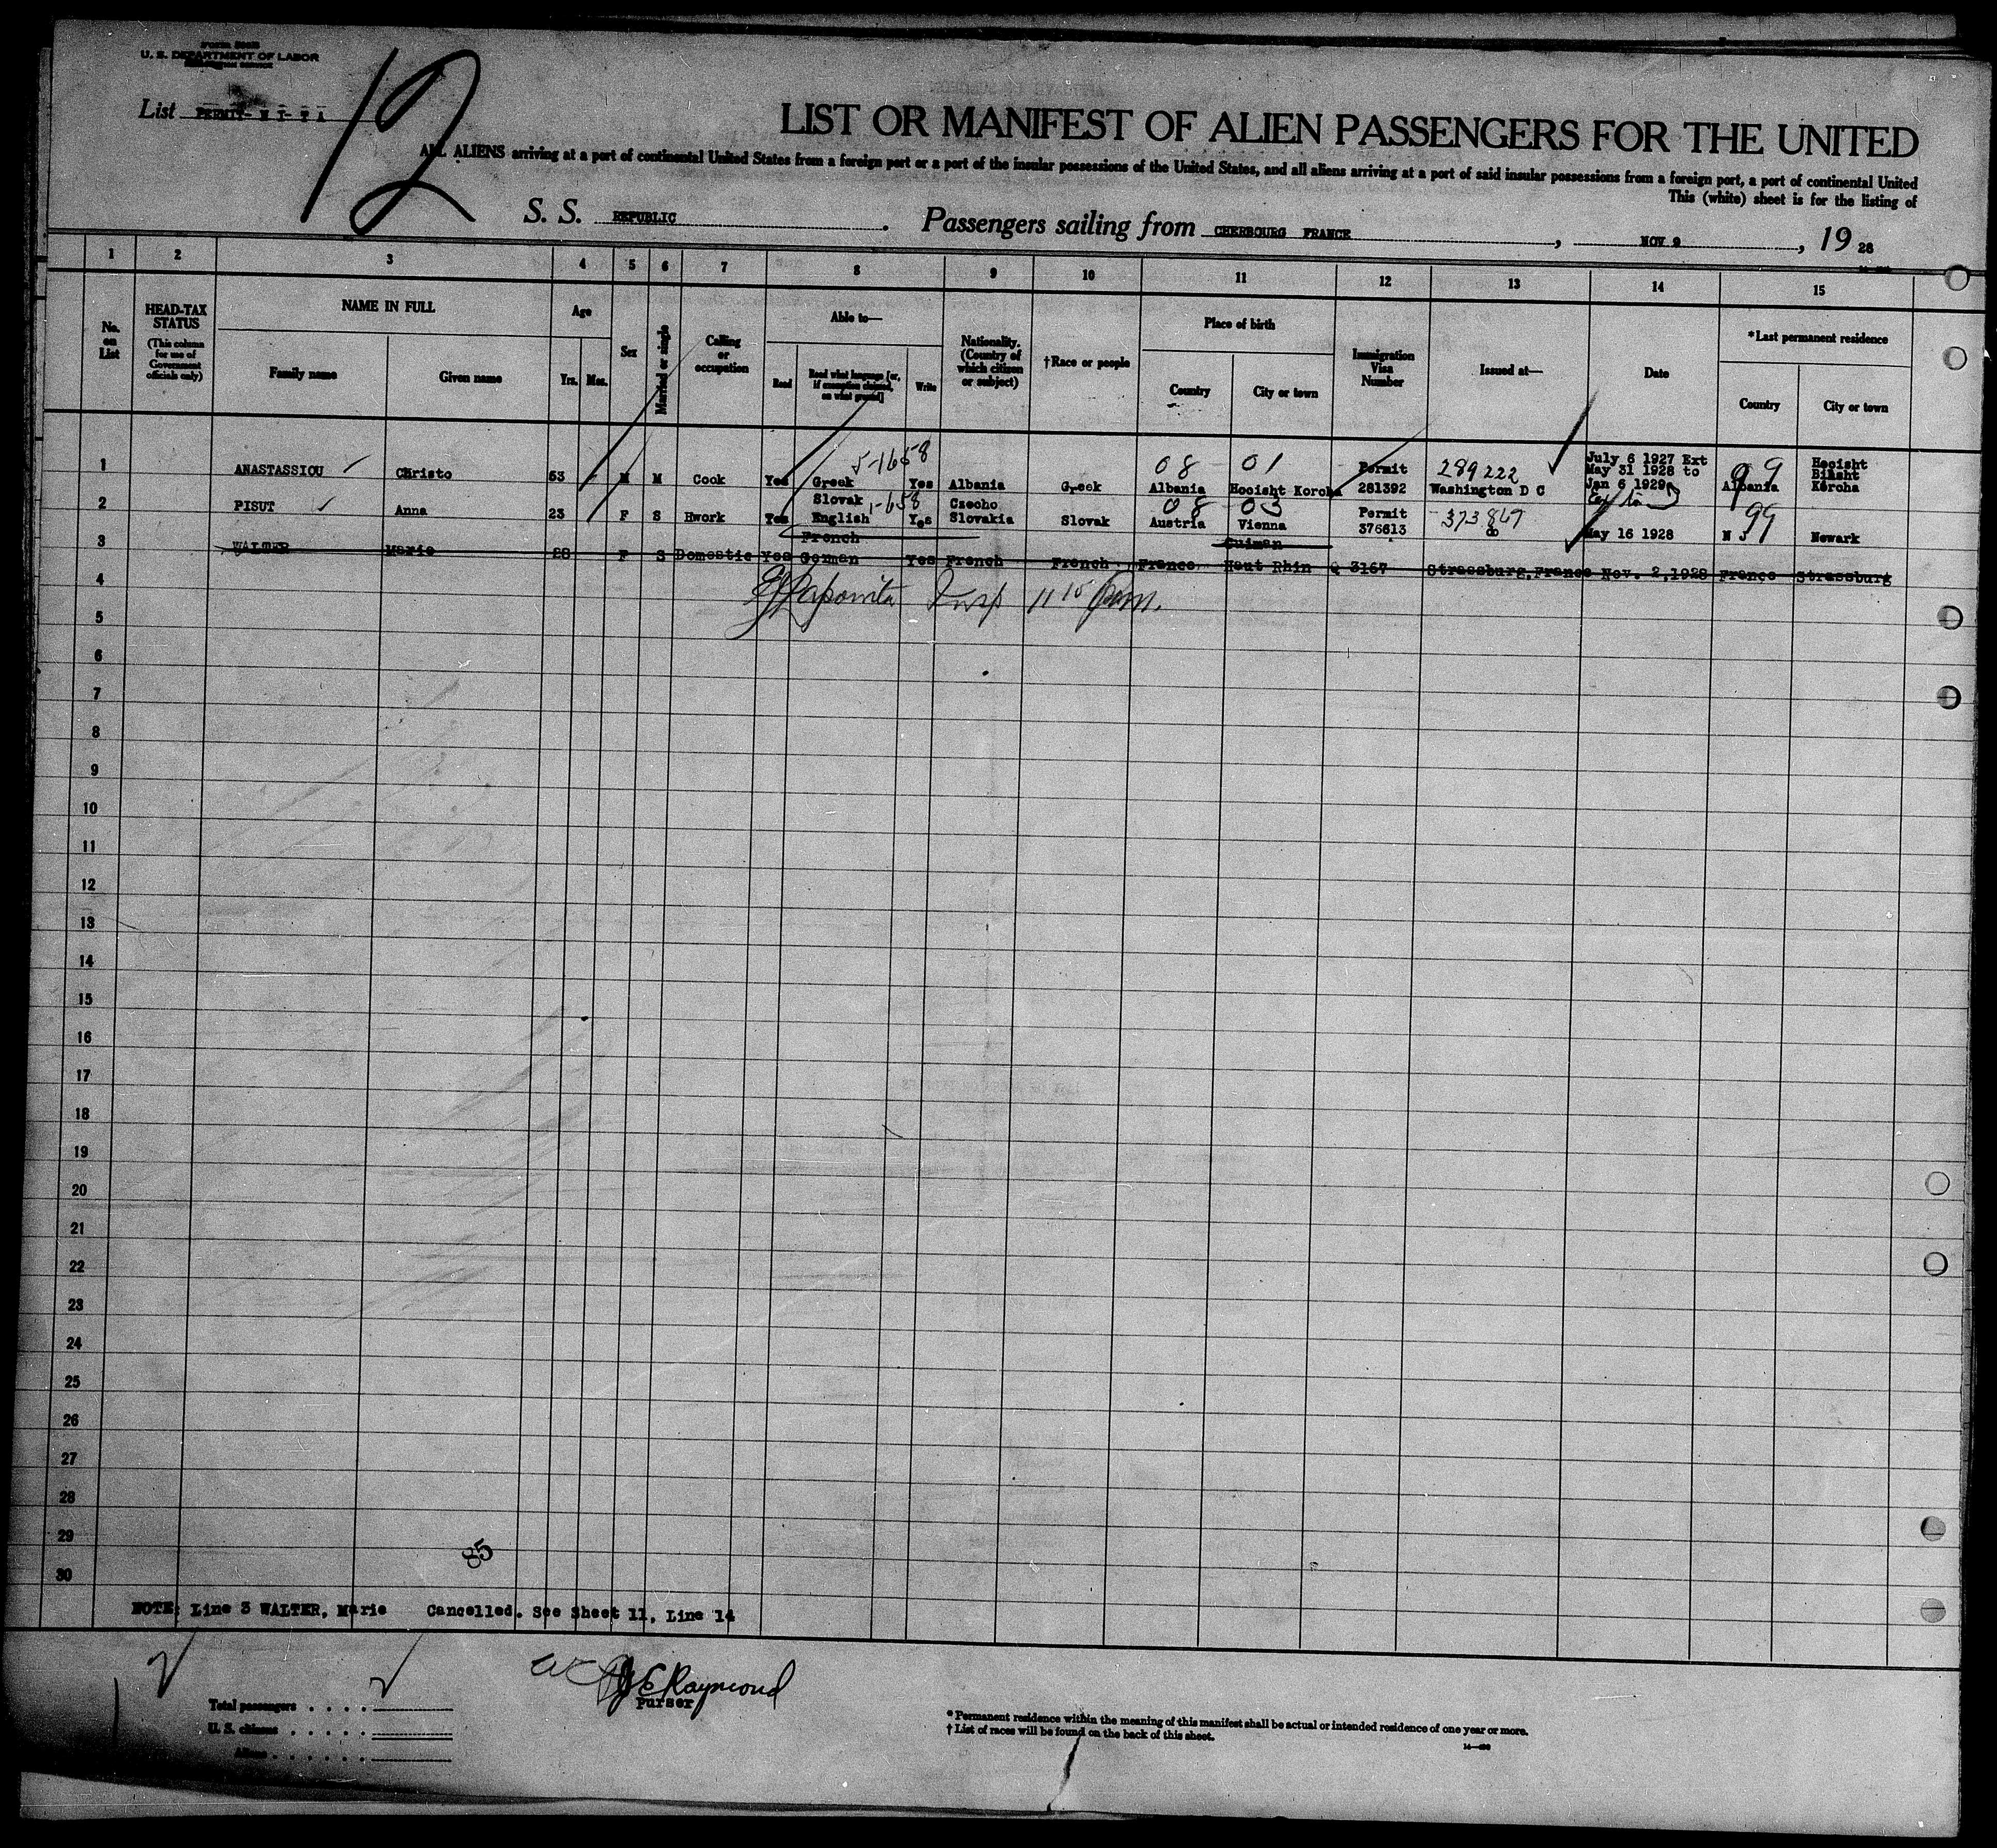 U. S. DEPARTMENT OF LABOR
List PERMIT-
12
LIST OR MANIFEST OF ALIEN PASSENGERS FOR THE UNITED
ALL ALIENS arriving at a port of continental United States from a foreign port or a port of the insular possessions of the United States, and all aliens arriving at a port of said insular possessions from a foreign port, a port of continental United
This (white) sheet is for the listing of
S. S. REPUBLIC. Passengers sailing from CHERBOURG FRANCE, NOV 9, 19 28
1 2 3 4 5 6 7 8 9 10 11 12 13 14 15
No. on List
HEAD-TAX STATUS
(This column for use of Government officials only)
NAME IN FULL
Family name Given name
Age
Yrs. Mos.
Sex
Married or single
Calling or occupation
Able to—
Read
Read what language [or, if exemption claimed, on what ground]
Write
Nationality. (Country of which citizen or subject)
†Race or people
Place of birth
Country City or town
Immigration Visa Number
Issued at—
Date
*Last permanent residence
Country City or town
1 ANASTASSIOU Christo 53 M M Cook Yes 5-1658 Greek Yes Albania Greek 08 Albania 01 Hocisht Koroha Permit 281392 289222 Washington D C July 6 1927 Ext May 31 1928 to Jan 6 1929 99 Albania Hocisht Bilisht Koroha
2 PISUT Anna 23 F S Hwork Yes Slovak English 1-658 Yes Czecho Slovakia Slovak 08 Austria 03 Vienna Permit 376613 373867 May 16 1928 99 N J Newark
3 WALTER Marie 28 F S Domestic Yes French German Yes French French France Guiman Haut Rhin Q 3167 Strassburg, France Nov. 2, 1928 France Strassburg
4 Insp 11 15 pm.
5
6
7
8
9
10
11
12
13
14
15
16
17
18
19
20
21
22
23
24
25
26
27
28
29
85
30
NOTE: Line 3 WALTER, Marie Cancelled. See Sheet 11, Line 14
Raymond
Purser
Total passengers . . . .
U. S. citizens . . . . .
Aliens . . . . . .
* Permanent residence within the meaning of this manifest shall be actual or intended residence of one year or more.
† List of races will be found on the back of this sheet.